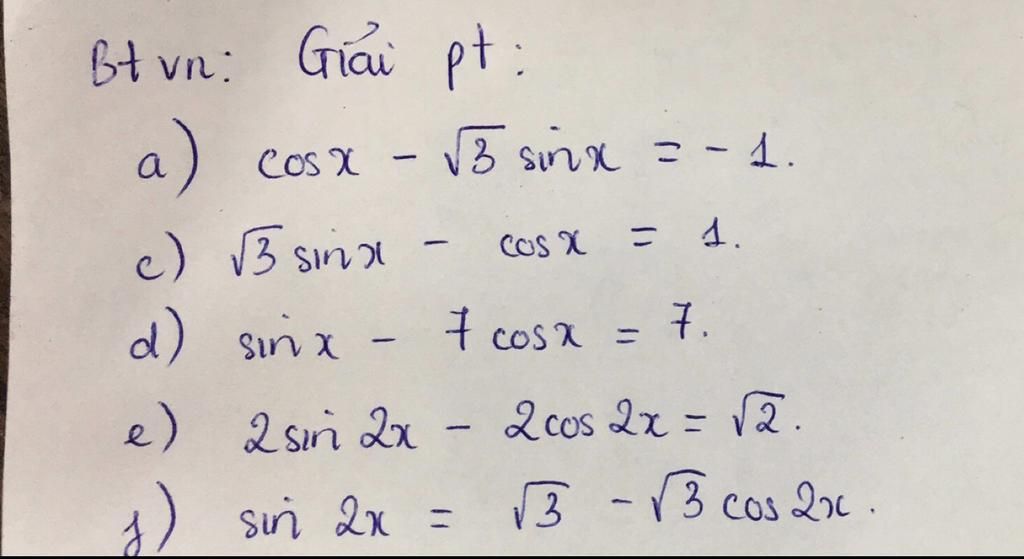 Btvn: Giải pt:
a) cosx - √3 sinx = -1.
c) √3 sinx - cosx = 1.
d) sinx - 7cosx = 7.
e) 2sin 2x - 2cos 2x = √2.
f) sin 2x = √3 - √3 cos2x.